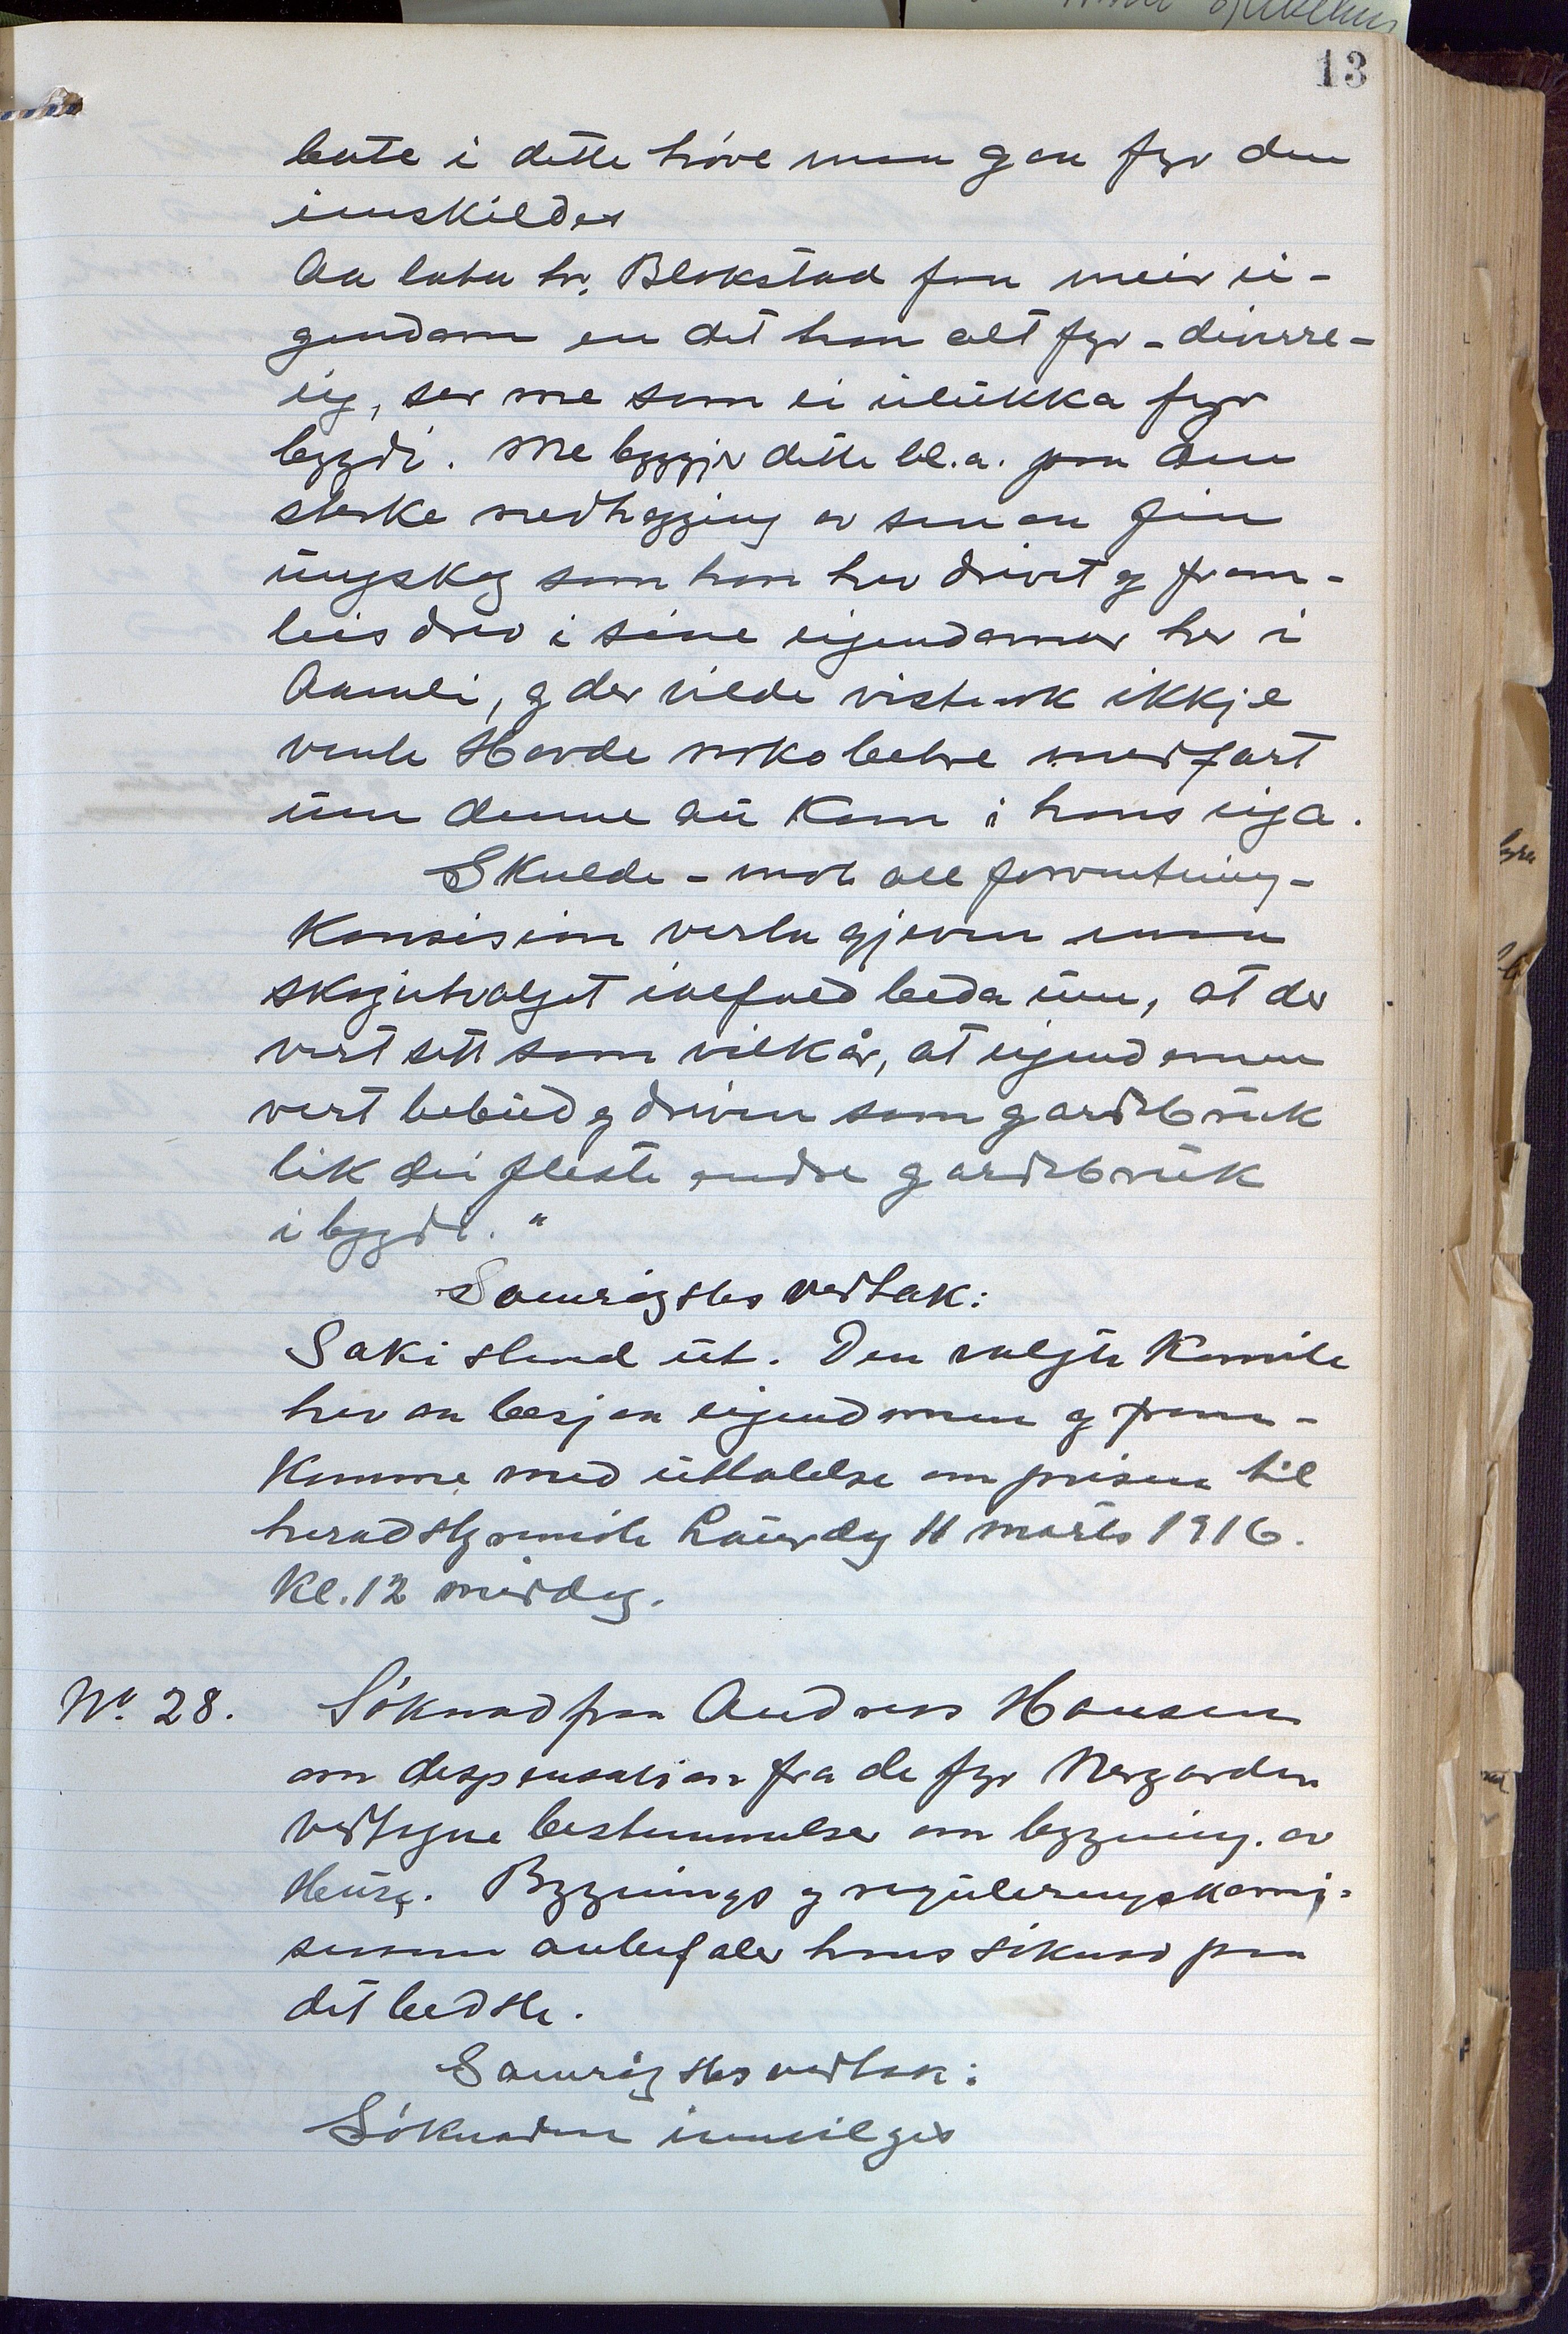 13
bate i dette høve maa gaa fyr den
einskildes
Aa lata hr. Blakstad faa meir ei-
gendom en det han alt fyr - diverre -
eig, ser me som ei ulukka fyr
bygdi. Me byggjer dette bl. a. paa den
sterke nedhogging av smaa fin
ungskog som han hev drivet og fram-
leis driv i sine eigendomar her i
Aamli, og der vilde vistnok ikkje
vente Hovde noko betre medfart
um denne au kom i hans eiga.
Skulde - mot all forventning -
Konsesion verta gjeven maa
skogutvalget ialfald beda um, at der
vert sett som vilkår, at eigendomen
vert bebudd og driven som gardsbruk
lik dei fleste andre gardsbruk
i bygdi."
Samrøystes vedtak:
Saki stend ut. Den valgte Komite
hev aa besjaa eigendomen og fram-
komme med uttalelse om prisen til
heradstyremøte Laurdag 11 marts 1916.
Kl. 12 middag.
No. 28. Søknad fraa Andreas Hansen
om dispensation fra de fyr Nergarden
vedtegne bestemmelser om bygning. av
Huse. Bygnings og reguleringskomi-
sionen anbefaler hans søknad paa
det bedste.
Samrøystes vedtak:
Søknaden innvilges